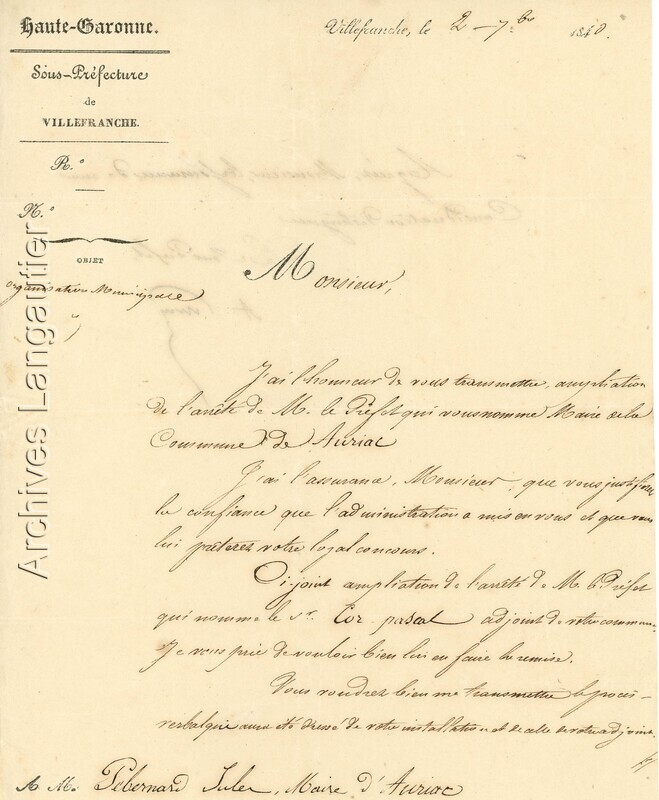 Haute-Garonne.
Sous-Préfecture
de
VILLEFRANCHE.
R.º
N.º
OBJET
organisation Municipale
Villefranche, le 2 7.bre 1840.
Monsieur,
J'ai l'honneur de vous transmettre, ampliation
de l'arrêté de M. le Préfet qui vous nomme Maire de la
Commune de Auriac
J'ai l'assurance, Monsieur, que vous justifierez
la confiance que l'administration a mis en vous et que vous
lui prêterez votre loyal concours.
Ci-joint ampliation de l'arrêté de M. le Préfet
qui nomme le Sr. Cor pascal adjoint de votre commune
Je vous prie de vouloir bien lui en faire la remise.
Vous voudrez bien me transmettre le procès-
verbal qui aura été dressé de votre installation et de celle de votre adjoint.
A M. Pébernard Jules, Maire d'Auriac
Archives Langautier